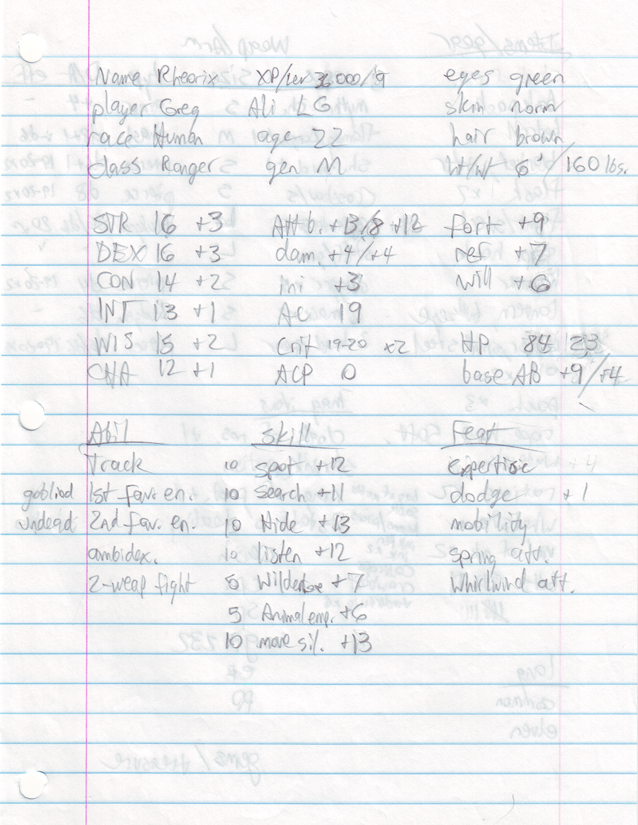 Name Rhearix XP/lev 36,000/9 eyes green
player Greg Ali. LG skin norm
race Human age 22 hair brown
class Ranger gen M ht/wt 6' / 160 lbs.
STR 16 +3 Att b. +13/8 +12 fort +9
DEX 16 +3 dam. +4/+4 ref +7
CON 14 +2 ini +3 will +6
INT 13 +1 AC 19
WIS 15 +2 Crit 19-20 x2 HP 84
CHA 12 +1 ACP 0 base AB +9/+4
Abil Skill Feat
Track 10 spot +12 expertise
goblind 1st fav. en. 10 search +11 dodge +1
undead 2nd Fav. en. 10 Hide +13 mobility
ambidex. 10 listen +12 spring att.
2-weap fight 5 +7 Whirlwind att.
5 Animal emp. +6
10 move sil. +13